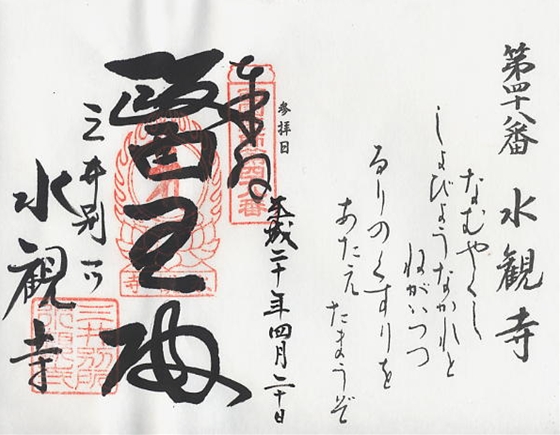 第四十八番 水観寺
なむやくし
しょびょうなかれと
ねがいつつ
るりのくすりを
あたえ たまうぞ
参拝日
平成二十年四月二十日
奉拝
醫王殿
三井別所
水観寺